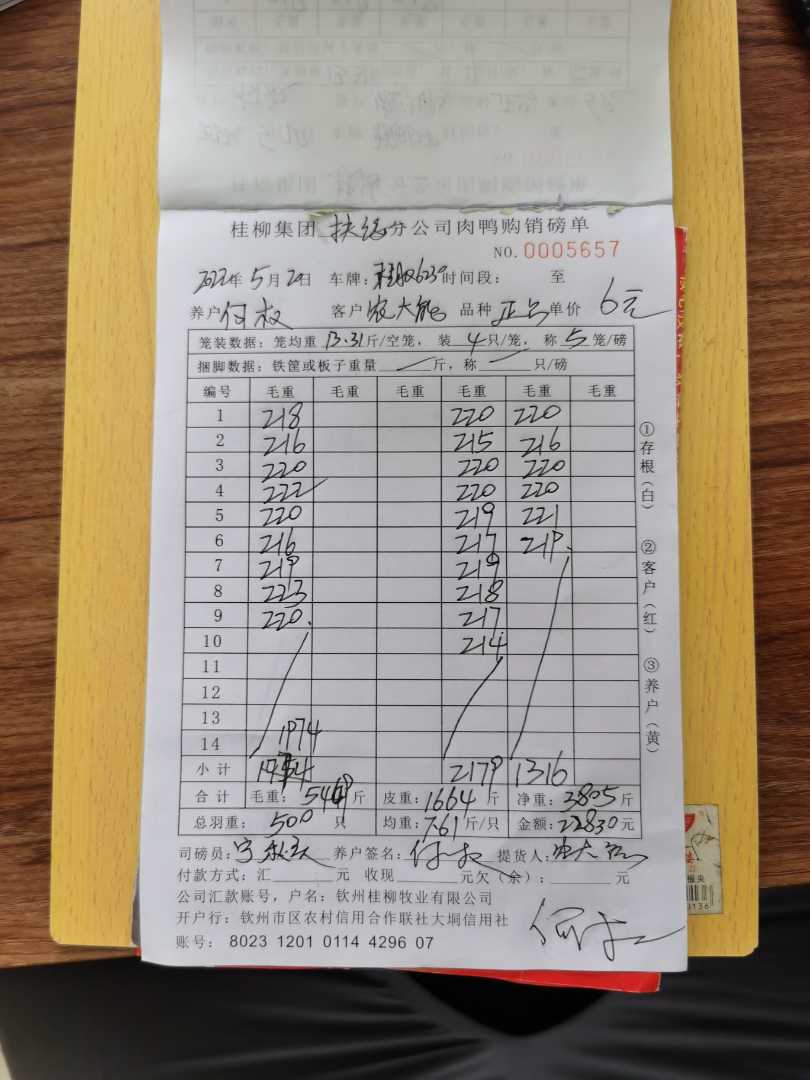 桂柳集团扶绥分公司肉鸭购销磅单
NO. 0005657
2022年5月20日 车牌: 时间段: 至
养户 何权 客户 农大 品种 正品 单价 6元
笼装数据: 笼均重 13.31斤/空笼, 装 4只/笼, 称 5笼/磅
捆脚数据: 铁筐或板子重量 斤, 称 只/磅
编号 毛重 毛重 毛重 毛重 毛重 毛重
1 218 220 220
2 216 215 216
3 220 220 220
4 222 220 220
5 220 219 221
6 216 217 219
7 219 219
8 223 218
9 220 217
10 214
11
12
13
14 1974
小计 2179 1316
合计 毛重: 5469斤 皮重: 1664斤 净重: 3805斤
总羽重: 500只 均重: 7.61斤/只 金额: 22830元
司磅员: 养户签名: 何权 提货人: 农大
付款方式: 汇 元 收现 元欠(余): 元
公司汇款账号, 户名: 钦州桂柳牧业有限公司
开户行: 钦州市区农村信用合作联社大垌信用社
账号: 8023 1201 0114 4296 07
①存根(白) ②客户(红) ③养户(黄)